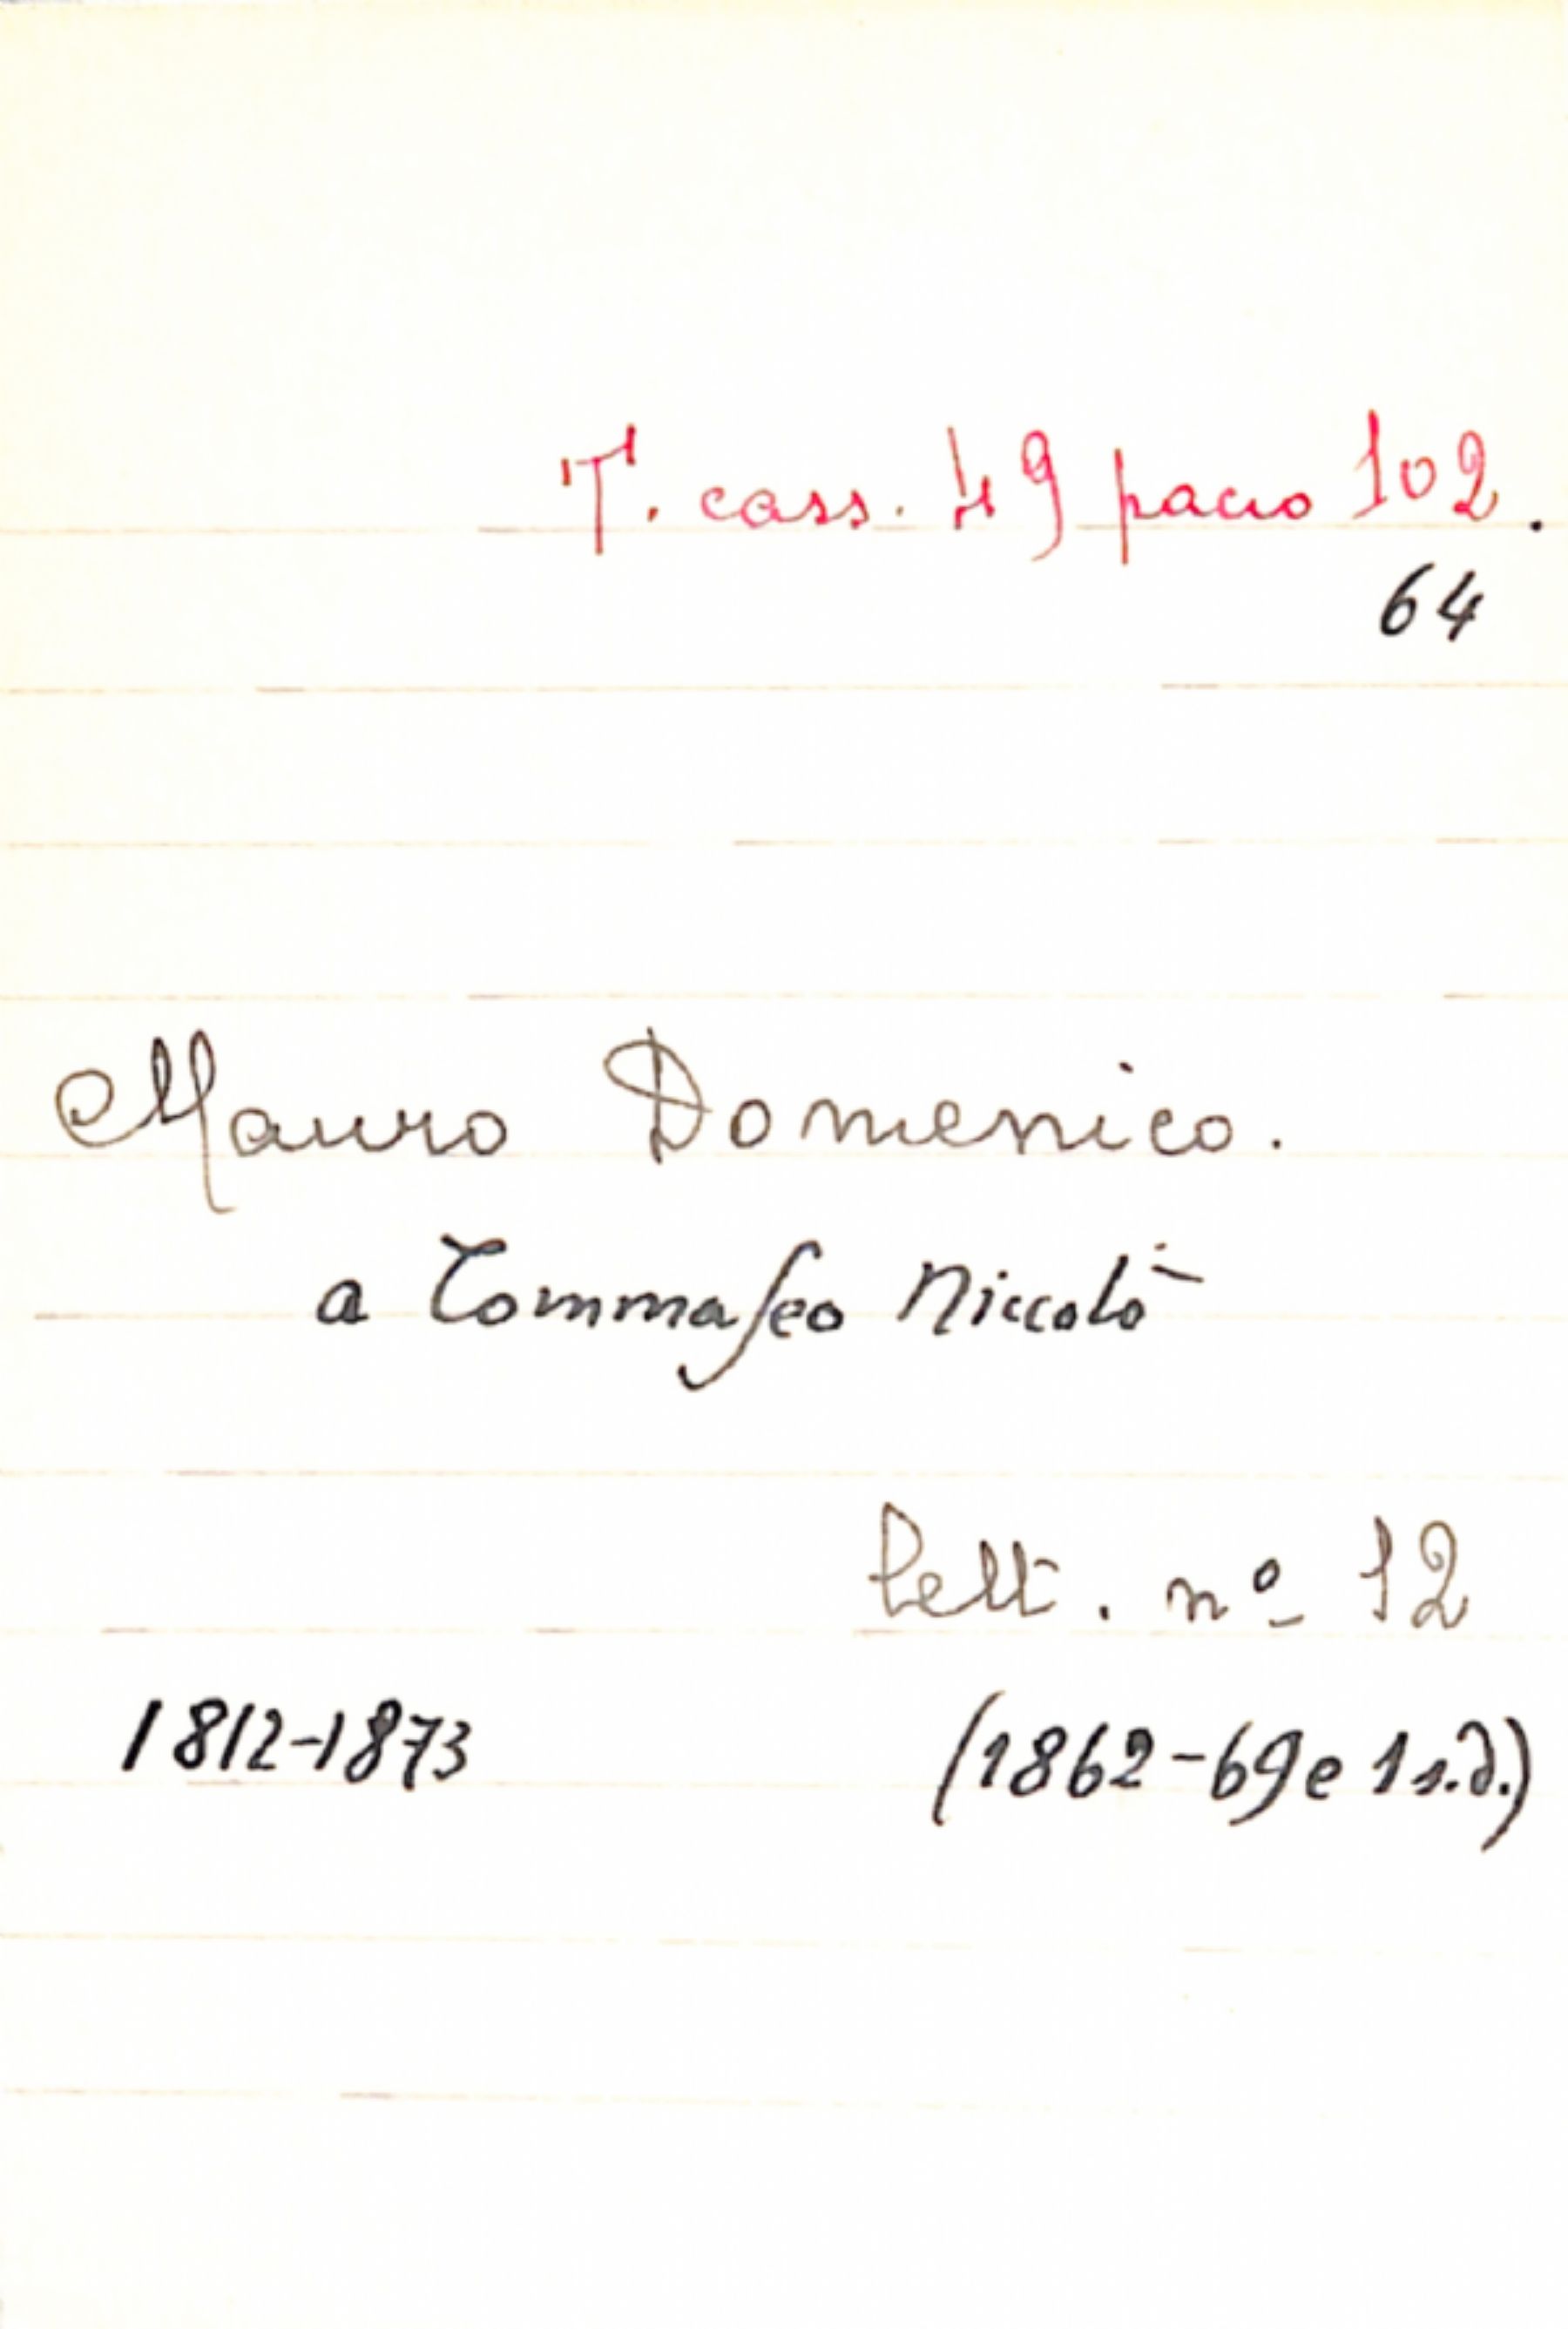 T. cass. 49 pacco 102.
64
Mauro Domenico.
a Tommaseo Niccolò
Lett. nº 12
1812-1873 (1862-69 e 1 s.d.)